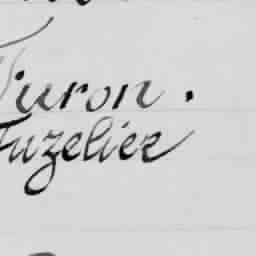 Turon.
Fuzeliez